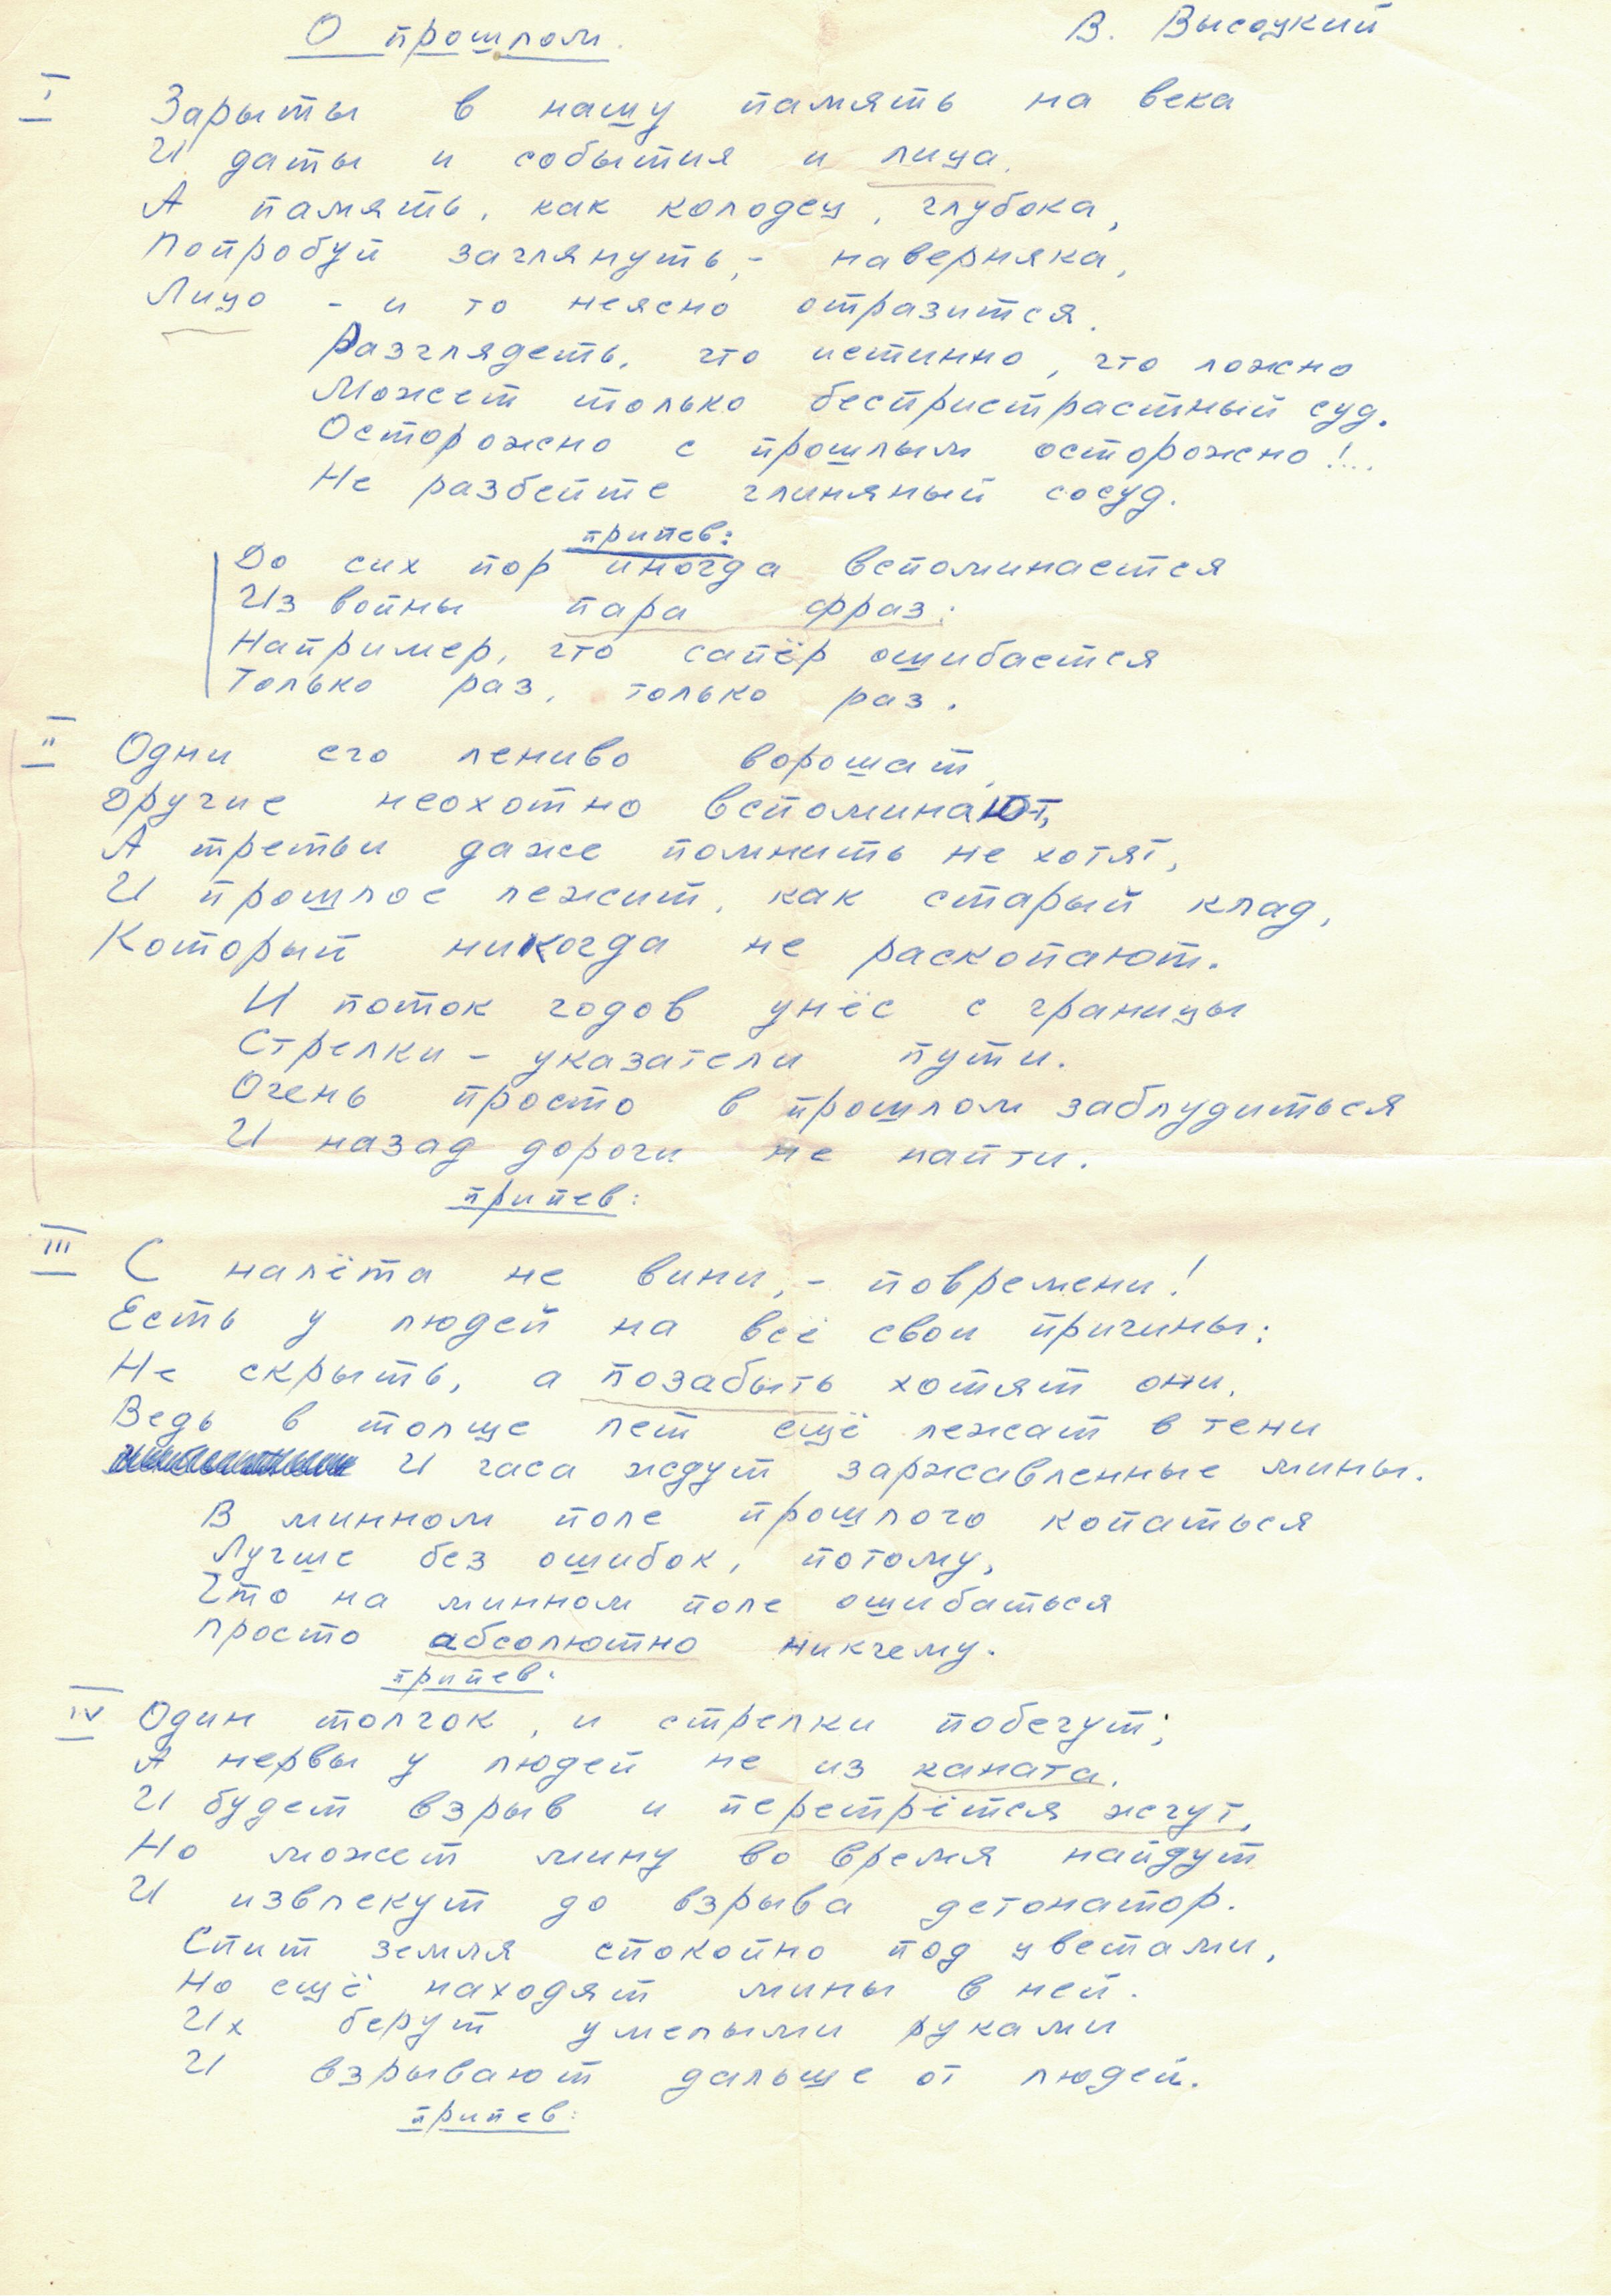 О прошлом.
В. Высоцкий
I
Зарыты в нашу память на века
И даты и события и лица.
А память, как колодец, глубока,
Попробуй заглянуть,- наверняка,
Лицо - и то неясно отразится.
Разглядеть, что истинно, что ложно
Может только беспристрастный суд.
Осторожно с прошлым осторожно!...
Не разбейте глиняный сосуд.
припев:
До сих пор иногда вспоминается
Из войны пара фраз:
Например, что сапёр ошибается
Только раз, только раз.
II
Одни его лениво ворошат,
Другие неохотно вспоминают,
А третьи даже помнить не хотят,
И прошлое лежит, как старый клад,
Который никогда не раскопают.
И поток годов унёс с границы
Стрелки - указатели пути.
Очень просто в прошлом заблудиться
И назад дороги не найти.
припев:
III
С налёта не вини,- повремени!
Есть у людей на всё свои причины:
Не скрыть, а позабыть хотят они,
Ведь в толще лет ещё лежат в тени
И часа ждут заржавленные мины.
В минном поле прошлого копаться
Лучше без ошибок, потому,
Что на минном поле ошибаться
Просто абсолютно никчему.
припев:
IV
Один толчок, и стрелки побегут;
А нервы у людей не из каната.
И будет взрыв и перетрётся жгут,
Но может мину во время найдут
И извлекут до взрыва детонатор.
Спит земля спокойно под цветами,
Но ещё находят мины в ней.
Их берут умелыми руками
И взрывают дальше от людей.
припев: